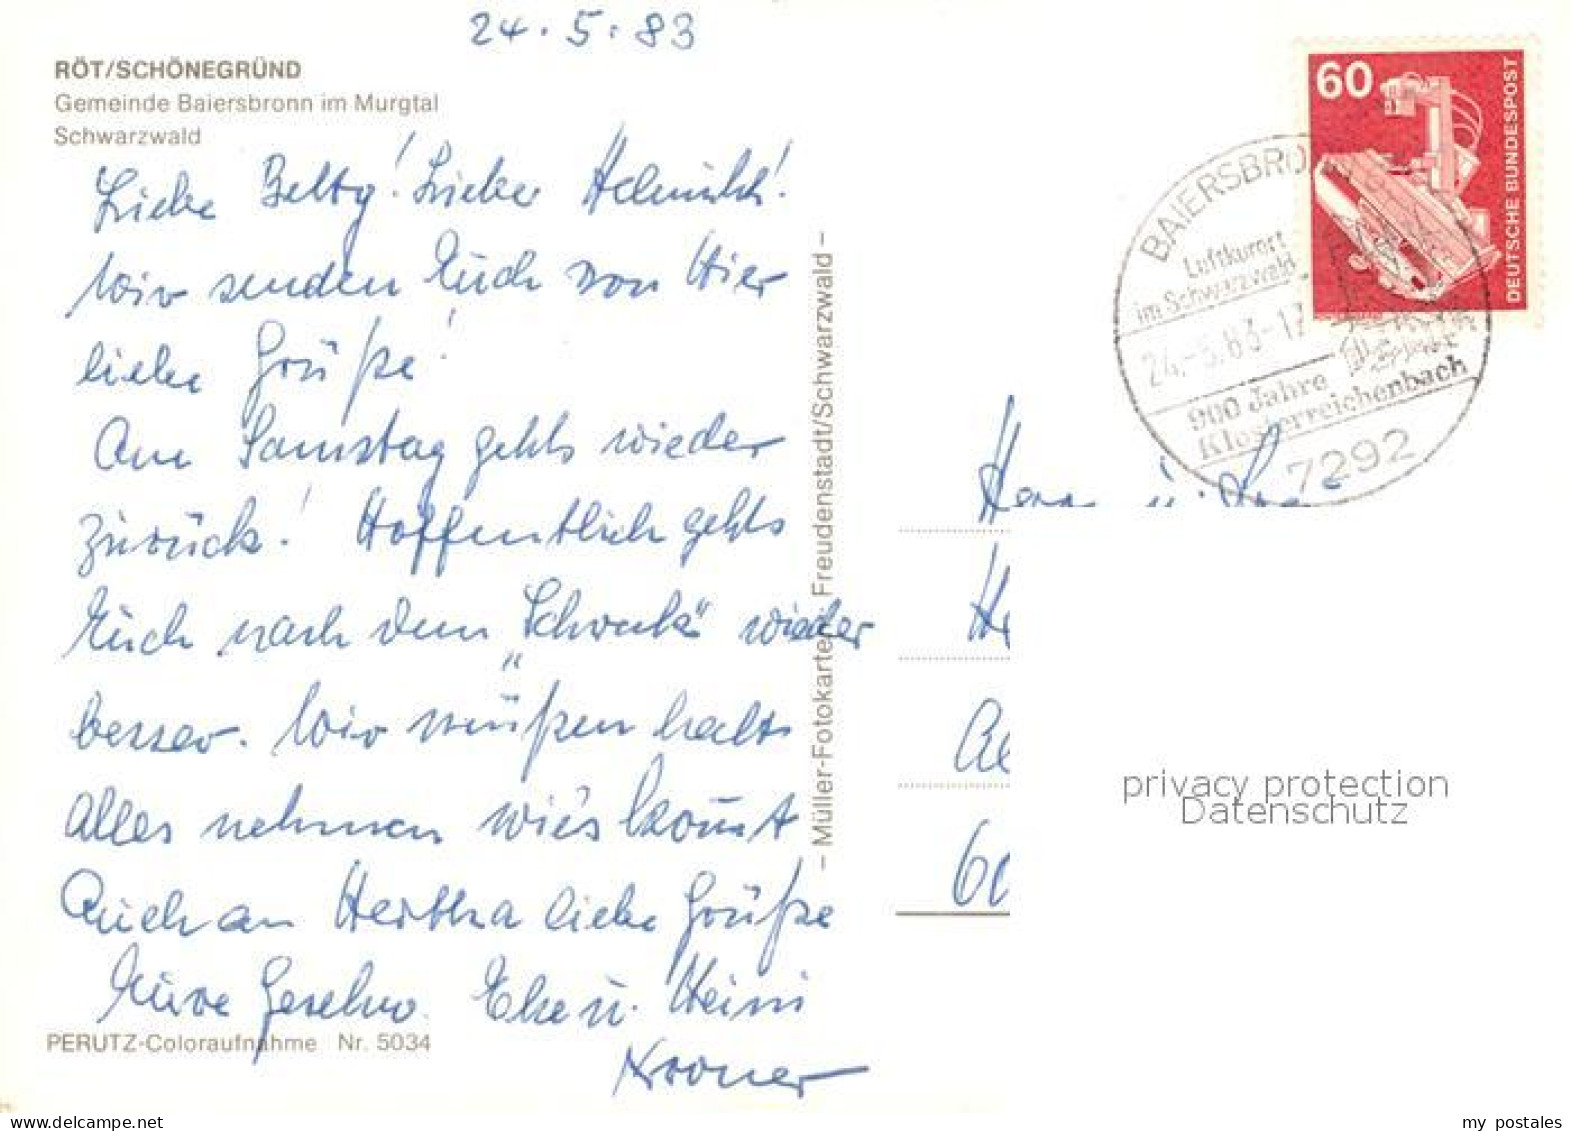 24.5.83
RÖT/SCHÖNEGRÜND
Gemeinde Baiersbronn im Murgtal
Schwarzwald
Liebe Betty! Lieber Helmuth!
Wir senden Euch von Hier
liebe Grüße!
Am Samstag gehts wieder
zurück! Hoffentlich gehts
Euch nach dem „Schreck" wieder
besser. Wir müßen halt
Alles nehmen wie's kommt
Auch an Hertha liebe Grüße
Eure Geschw. Else u. Heini
Kroner
PERUTZ-Coloraufnahme Nr. 5034
– Müller-Fotokarten Freudenstadt/Schwarzwald –
60
DEUTSCHE BUNDESPOST
Luftkurort
im Schwarzwald
24.-5.83-17
900 Jahre
Klosterreichenbach
7292
Herr u.
privacy protection
Datenschutz
delcampe.net
my_postales